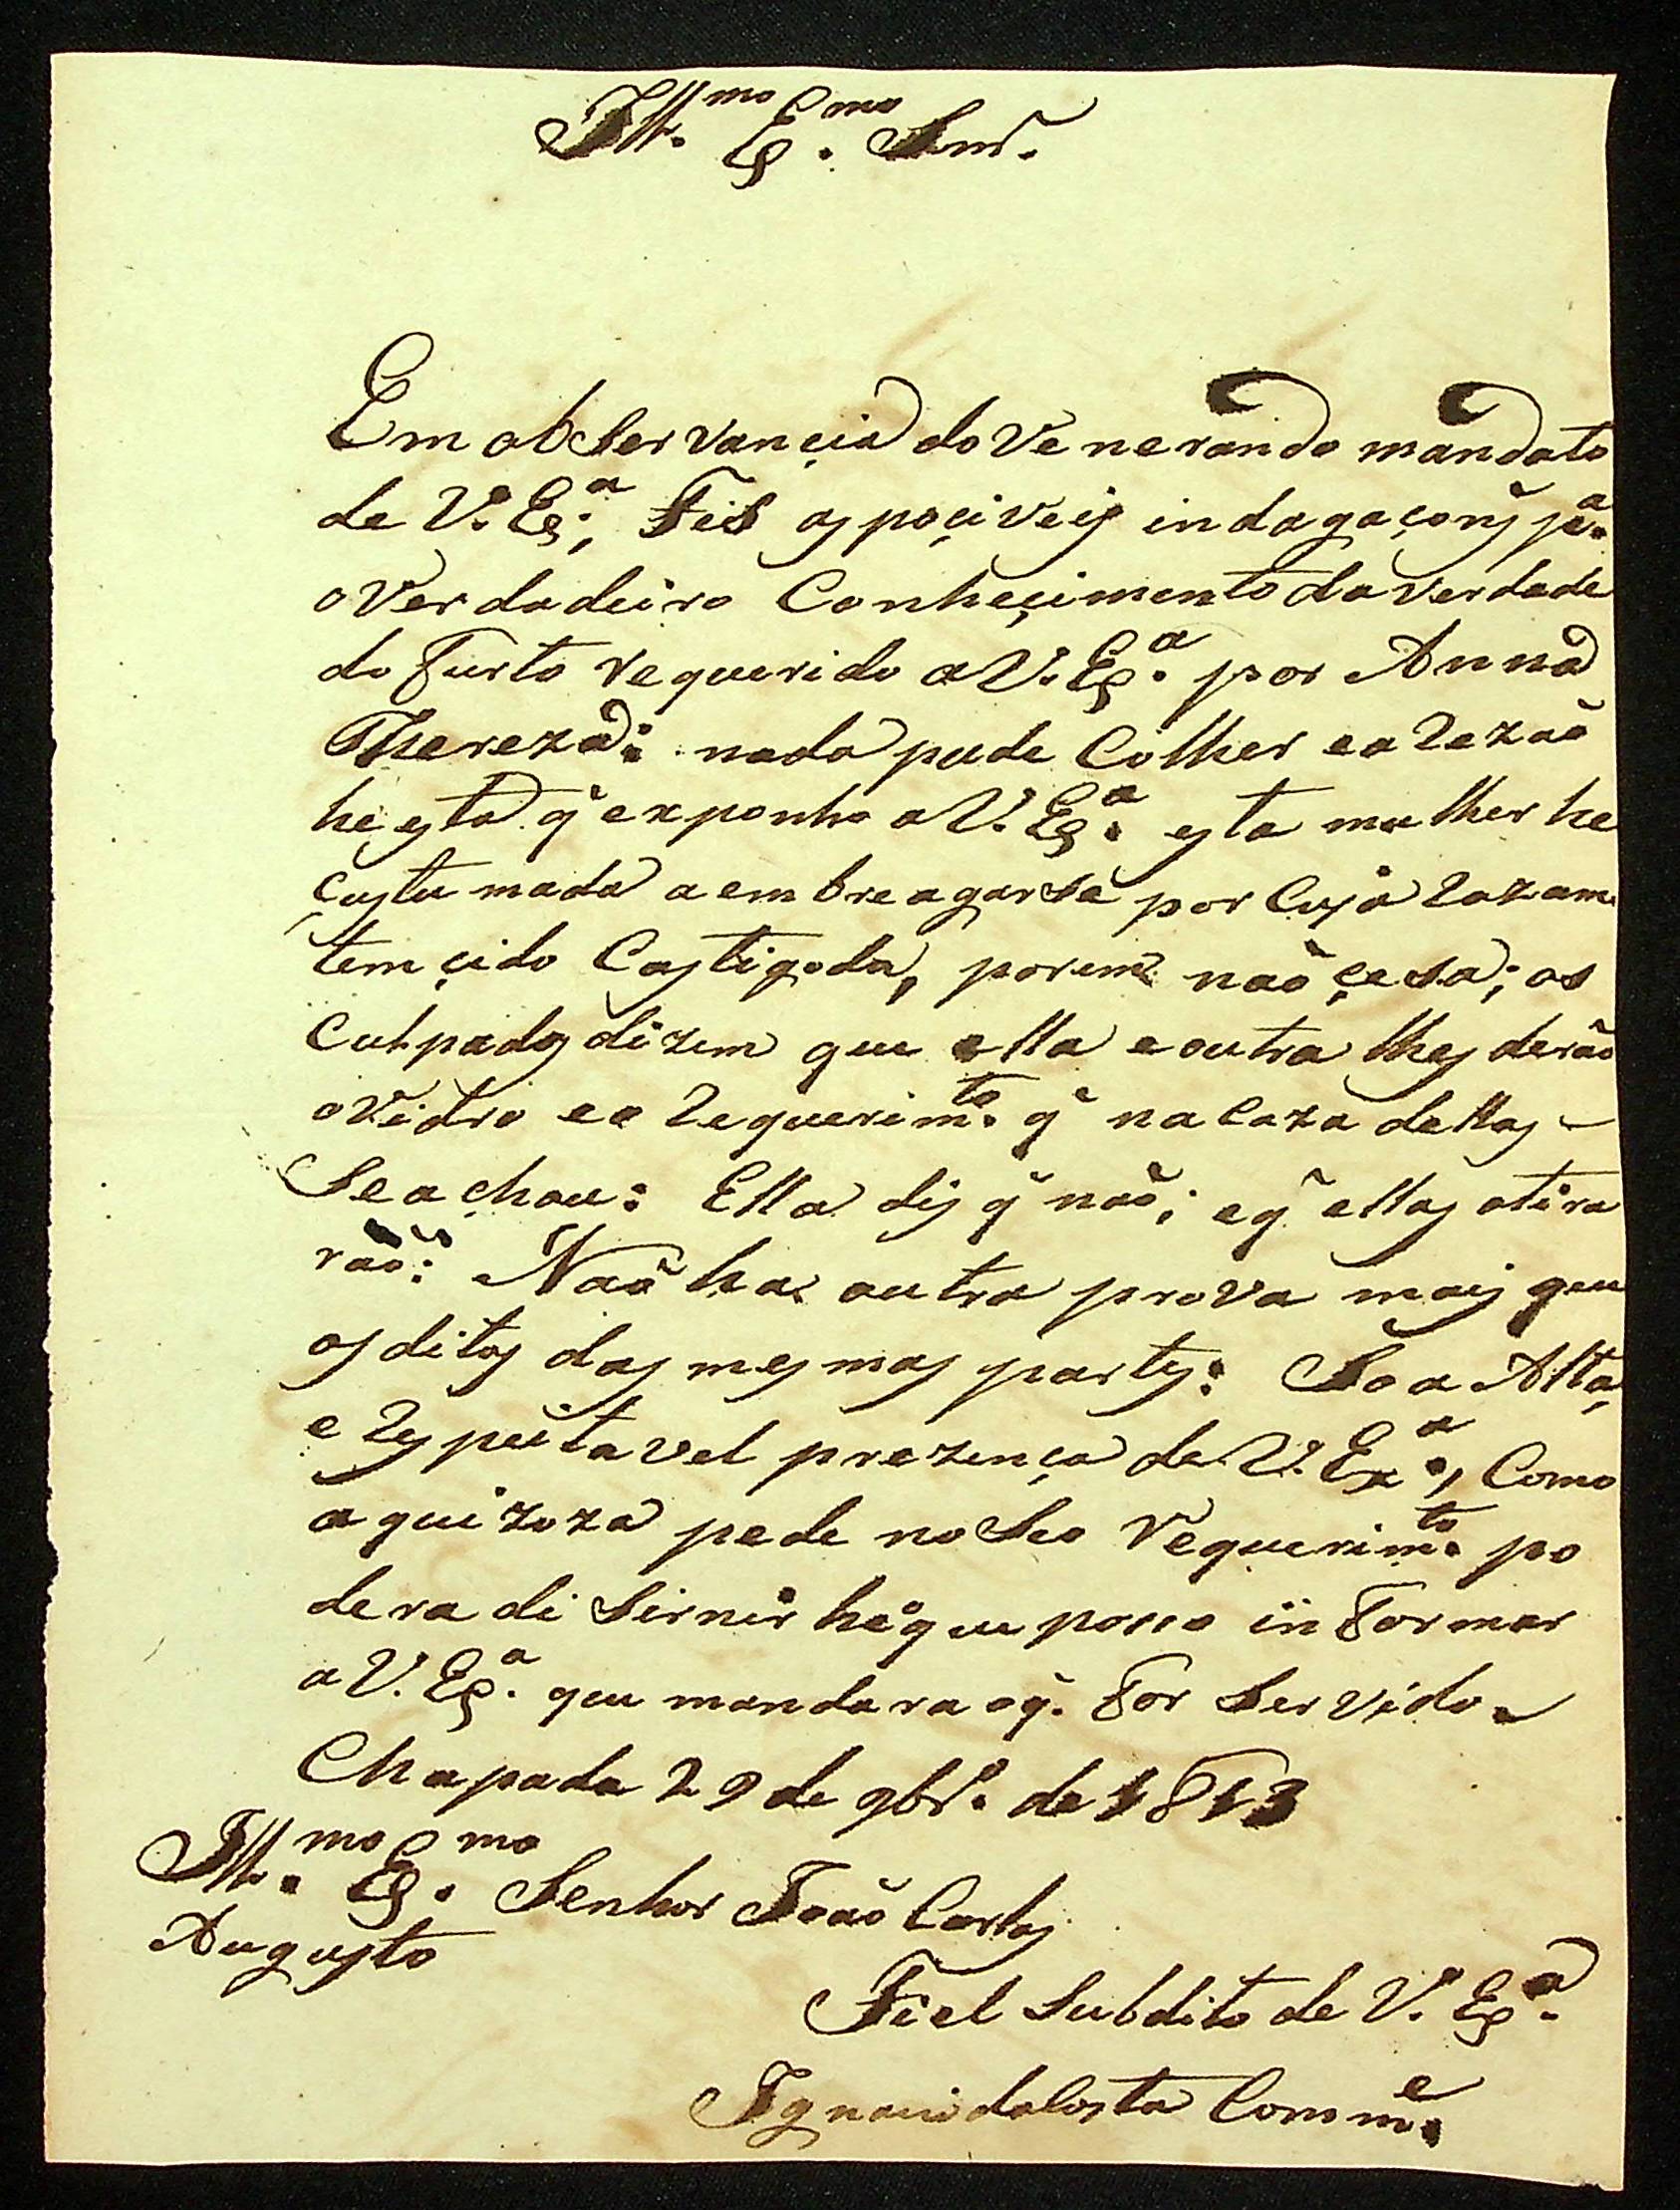 Ill.mo Ex.mo Snr.
Em obServançia do Venerando mandato
de V. Ex.a, Fis as poçiveis indagaçoñs p.a
o Verdadeiro Conheçimento da Verdade
do Furto requerido a V. Ex.a por Anna
Thereza: nada pude Colher e a Rezaõ
he esta q̃ exponho a V. Ex.a esta mulher he
custumada a embreagarse por Cuja Razam
tem çido Castigada, porem naõ çesa; os
Culpados dizem que ella e outra lhes deraõ
o Vidro e o Requerim.to q̃ na Caza dellas
Se achou: Ella dis q̃ naõ; e q̃ elles o tira
raõ: Naõ ha outra prova mais que
os ditos das mesmas partes: So a Alta,
e Respeitavel prezença de V. Ex.a, Como
a queixoza pede no Seo Requerim.to po
dera diSirnir he o que posso informar
a V. Ex.a que mandara o q̃. For Servido
Chapada 29 de 9br.o de 1813
Ill.mo Ex.mo Senhor Joaõ Carlos
Augusto
Fiel Subdito de V. Ex.a
Ignacio da Costa Comm.e